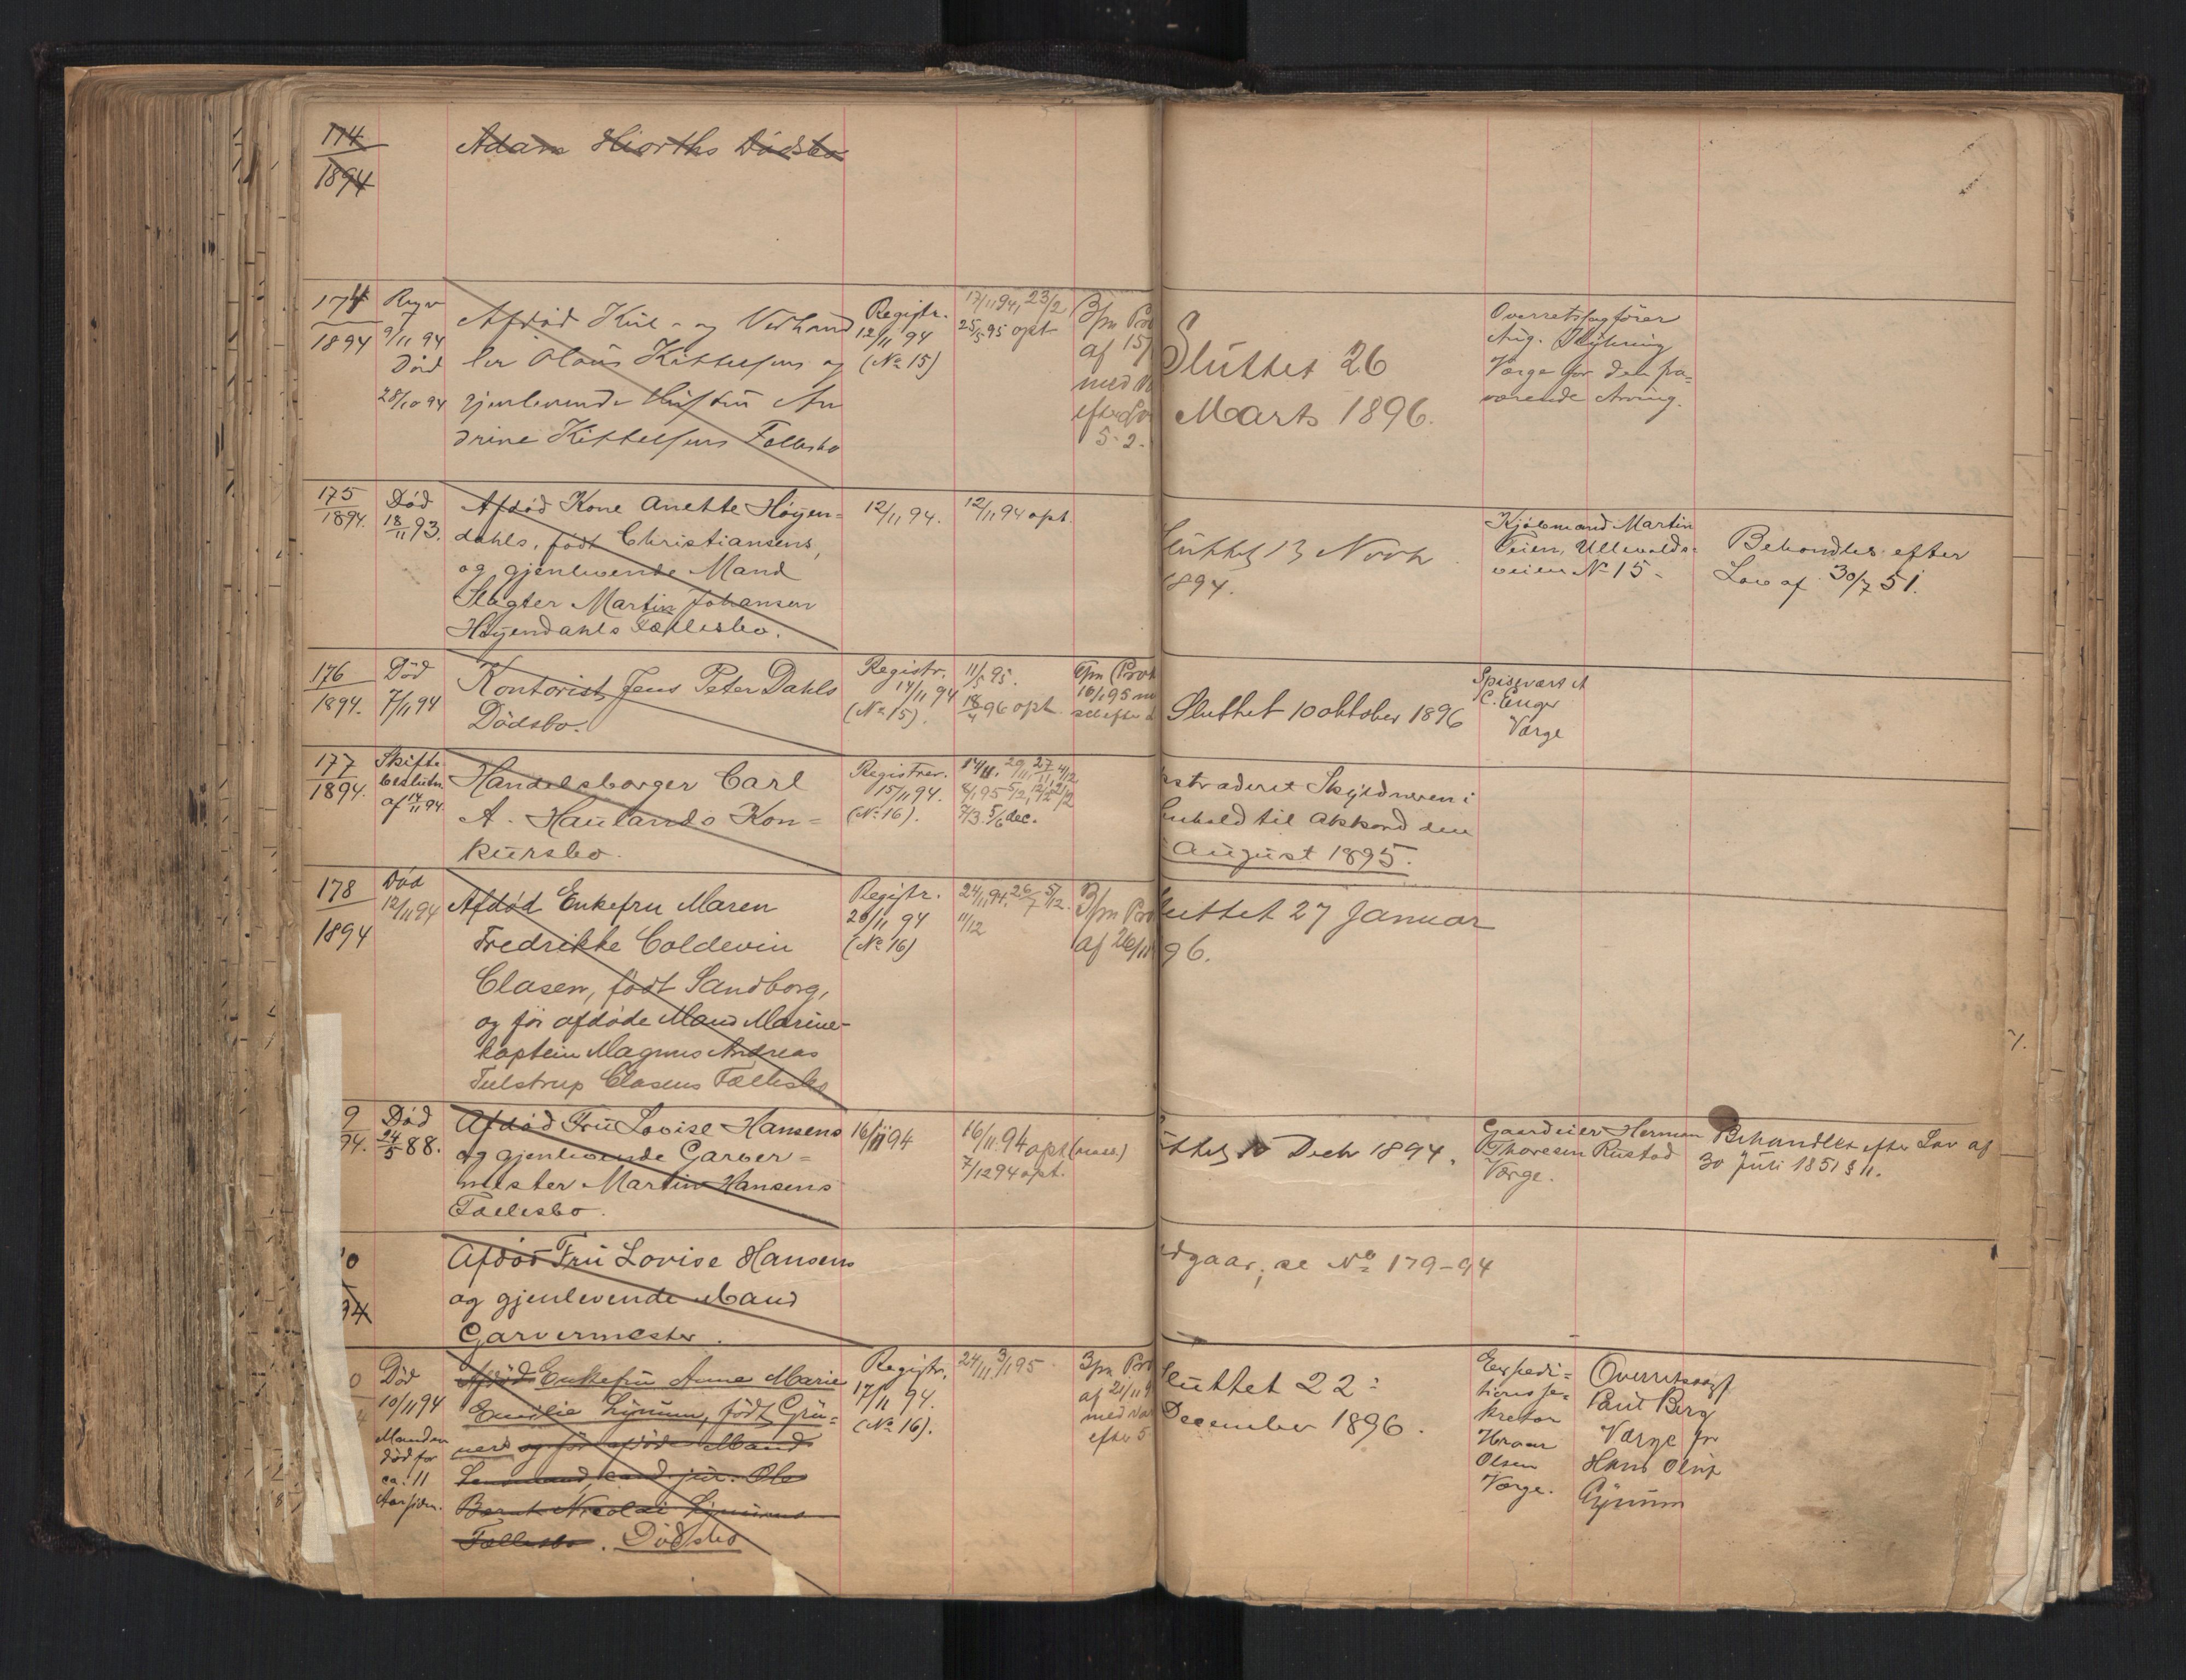 174
1894
Adam Hiorths Dødsbo
174
1894
9/11 94
Død
28/10 94
Afdød Kul- og Vedhand
ler Olaus Kittelsens og
gjenlevende Hustru An
drine Kittelsens Fællesbo
Registr.
12/11 94
(No 15)
17/11 94, 23/2
25/5 95 opt
3/pn Pro
af 15/
med
efter
5-2.
Sluttet 26
Marts 1896.
Overretssagfører
Aug.
Værge for den fra=
værende Arving.
175
1894.
Død
18/11 93.
Afdød Kone Anette Høyen=
dahls, født Christiansens,
og gjenlevende Mand
Slagter Martin Johansen
Høyendahls Fællesbo.
12/11 94.
12/11 94 opt.
luttet 13 Novbr
1894.
Kjøbmand Martin
Teien, Ullevolds-
veien No 15-
Behandles efter
Lov af 30/7 51.
176
1894.
Død
7/11 94
Kontorist Jens Peter Dahls
Dödsbo.
Registr.
14/11 94
(No 15).
11/5 95.
18/4 96 opt.
16/1 95
Sluttet 10 oktober 1896
Spisevært
C. Enger
Værge
177
1894.
Skifte
beslutn.
af 14/11 94.
Handelsborger Carl
A. Haulands Kon=
kursbo.
Registrer.
15/11 94.
(No 16).
14/11, 29/11, 27/11, 4/12
8/1 95 5/2, 12/2 21/2
7/3. 5/6 dec.
straderet Skyldneren i
enhold til Akkord den
August 1895.
178
1894
Død
12/11 94
Afdød Enkefru Maren
Fredrikke Coldevin
Clasen, født Sandborg,
og før afdøde Mand Marine-
kaptein Magnus Andreas
Tulstrup Clasens Fællesbo
Registr.
20/11 94
(No 16)
24/11 94, 26/7 5/12.
11/12
3/pn Pro
af 26/11
luttet 27 Januar
96.
9
94.
Død
24/5 88.
Afdød Fru Lovise Hansens
og gjenlevende Garver=
mester Martin Hansens
Fællesbo.
16/11 94
16/11. 94 opt
7/12 94 opt.
ttet 10 Decbr 1894.
Gaardeier Herman
Thoresen Rustad
Værge.
Behandlet efter Lov af
30 Juli 1851 § 11.
0
94
Afdød Fru Lovise Hansens
og gjenlevende Mand
Garvermester.
dgaar, se No 179-94
0
Død
10/11 94
Manden
død for
ca. 11
Aar siden.
Afdød Enkefru Anne Marie
Emilie Lynum, født Grü=
ners og før afdøde Mand
Lensmand, cand. jur. Ole
Bernt Nicolai Lynums
Fællesbo. Dödsbo
Registr.
17/11 94.
(No 16).
24/11 3/1 95
3pn Pro
af 21/11 9
med
efter 5
luttet 22=
December 1896.
Expedi=
tionsse=
kretær
Olsen
Værge.
Overretssagf.
Paul Berg
Værge for
Hans Oluf
Lynum